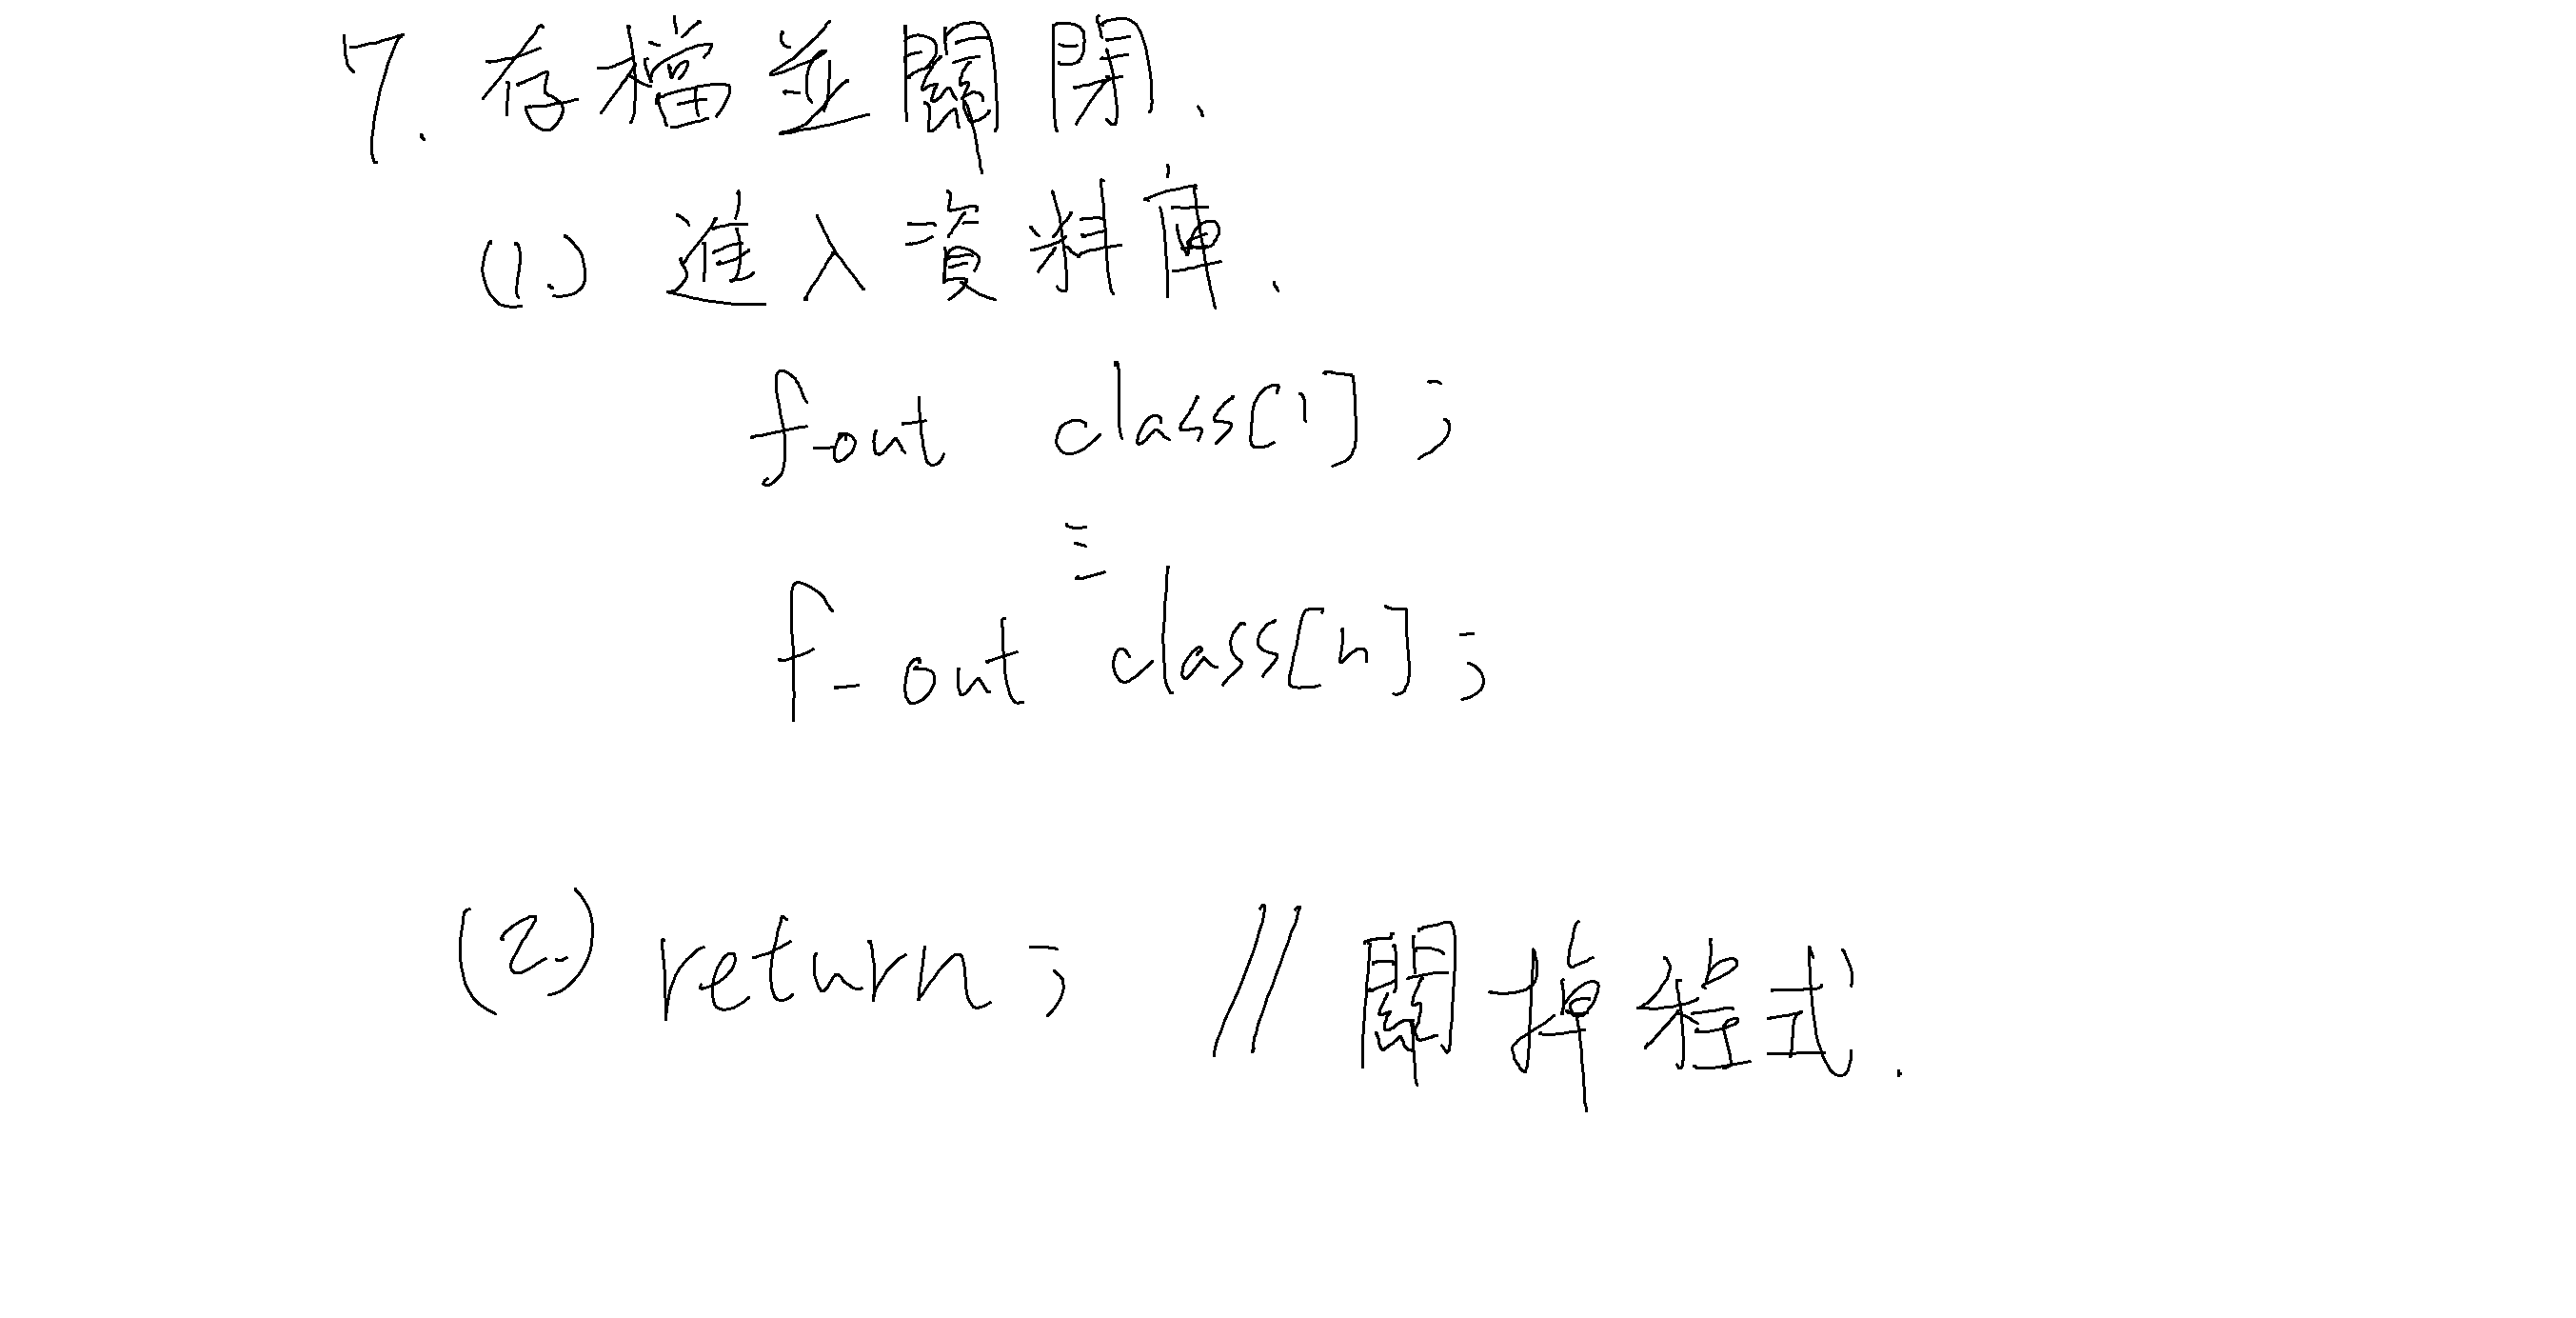 7. 存檔並關閉.
(1.) 進入資料庫.
f_out class[1];
⋮
f_out class[n];
(2.) return; // 關掉程式.